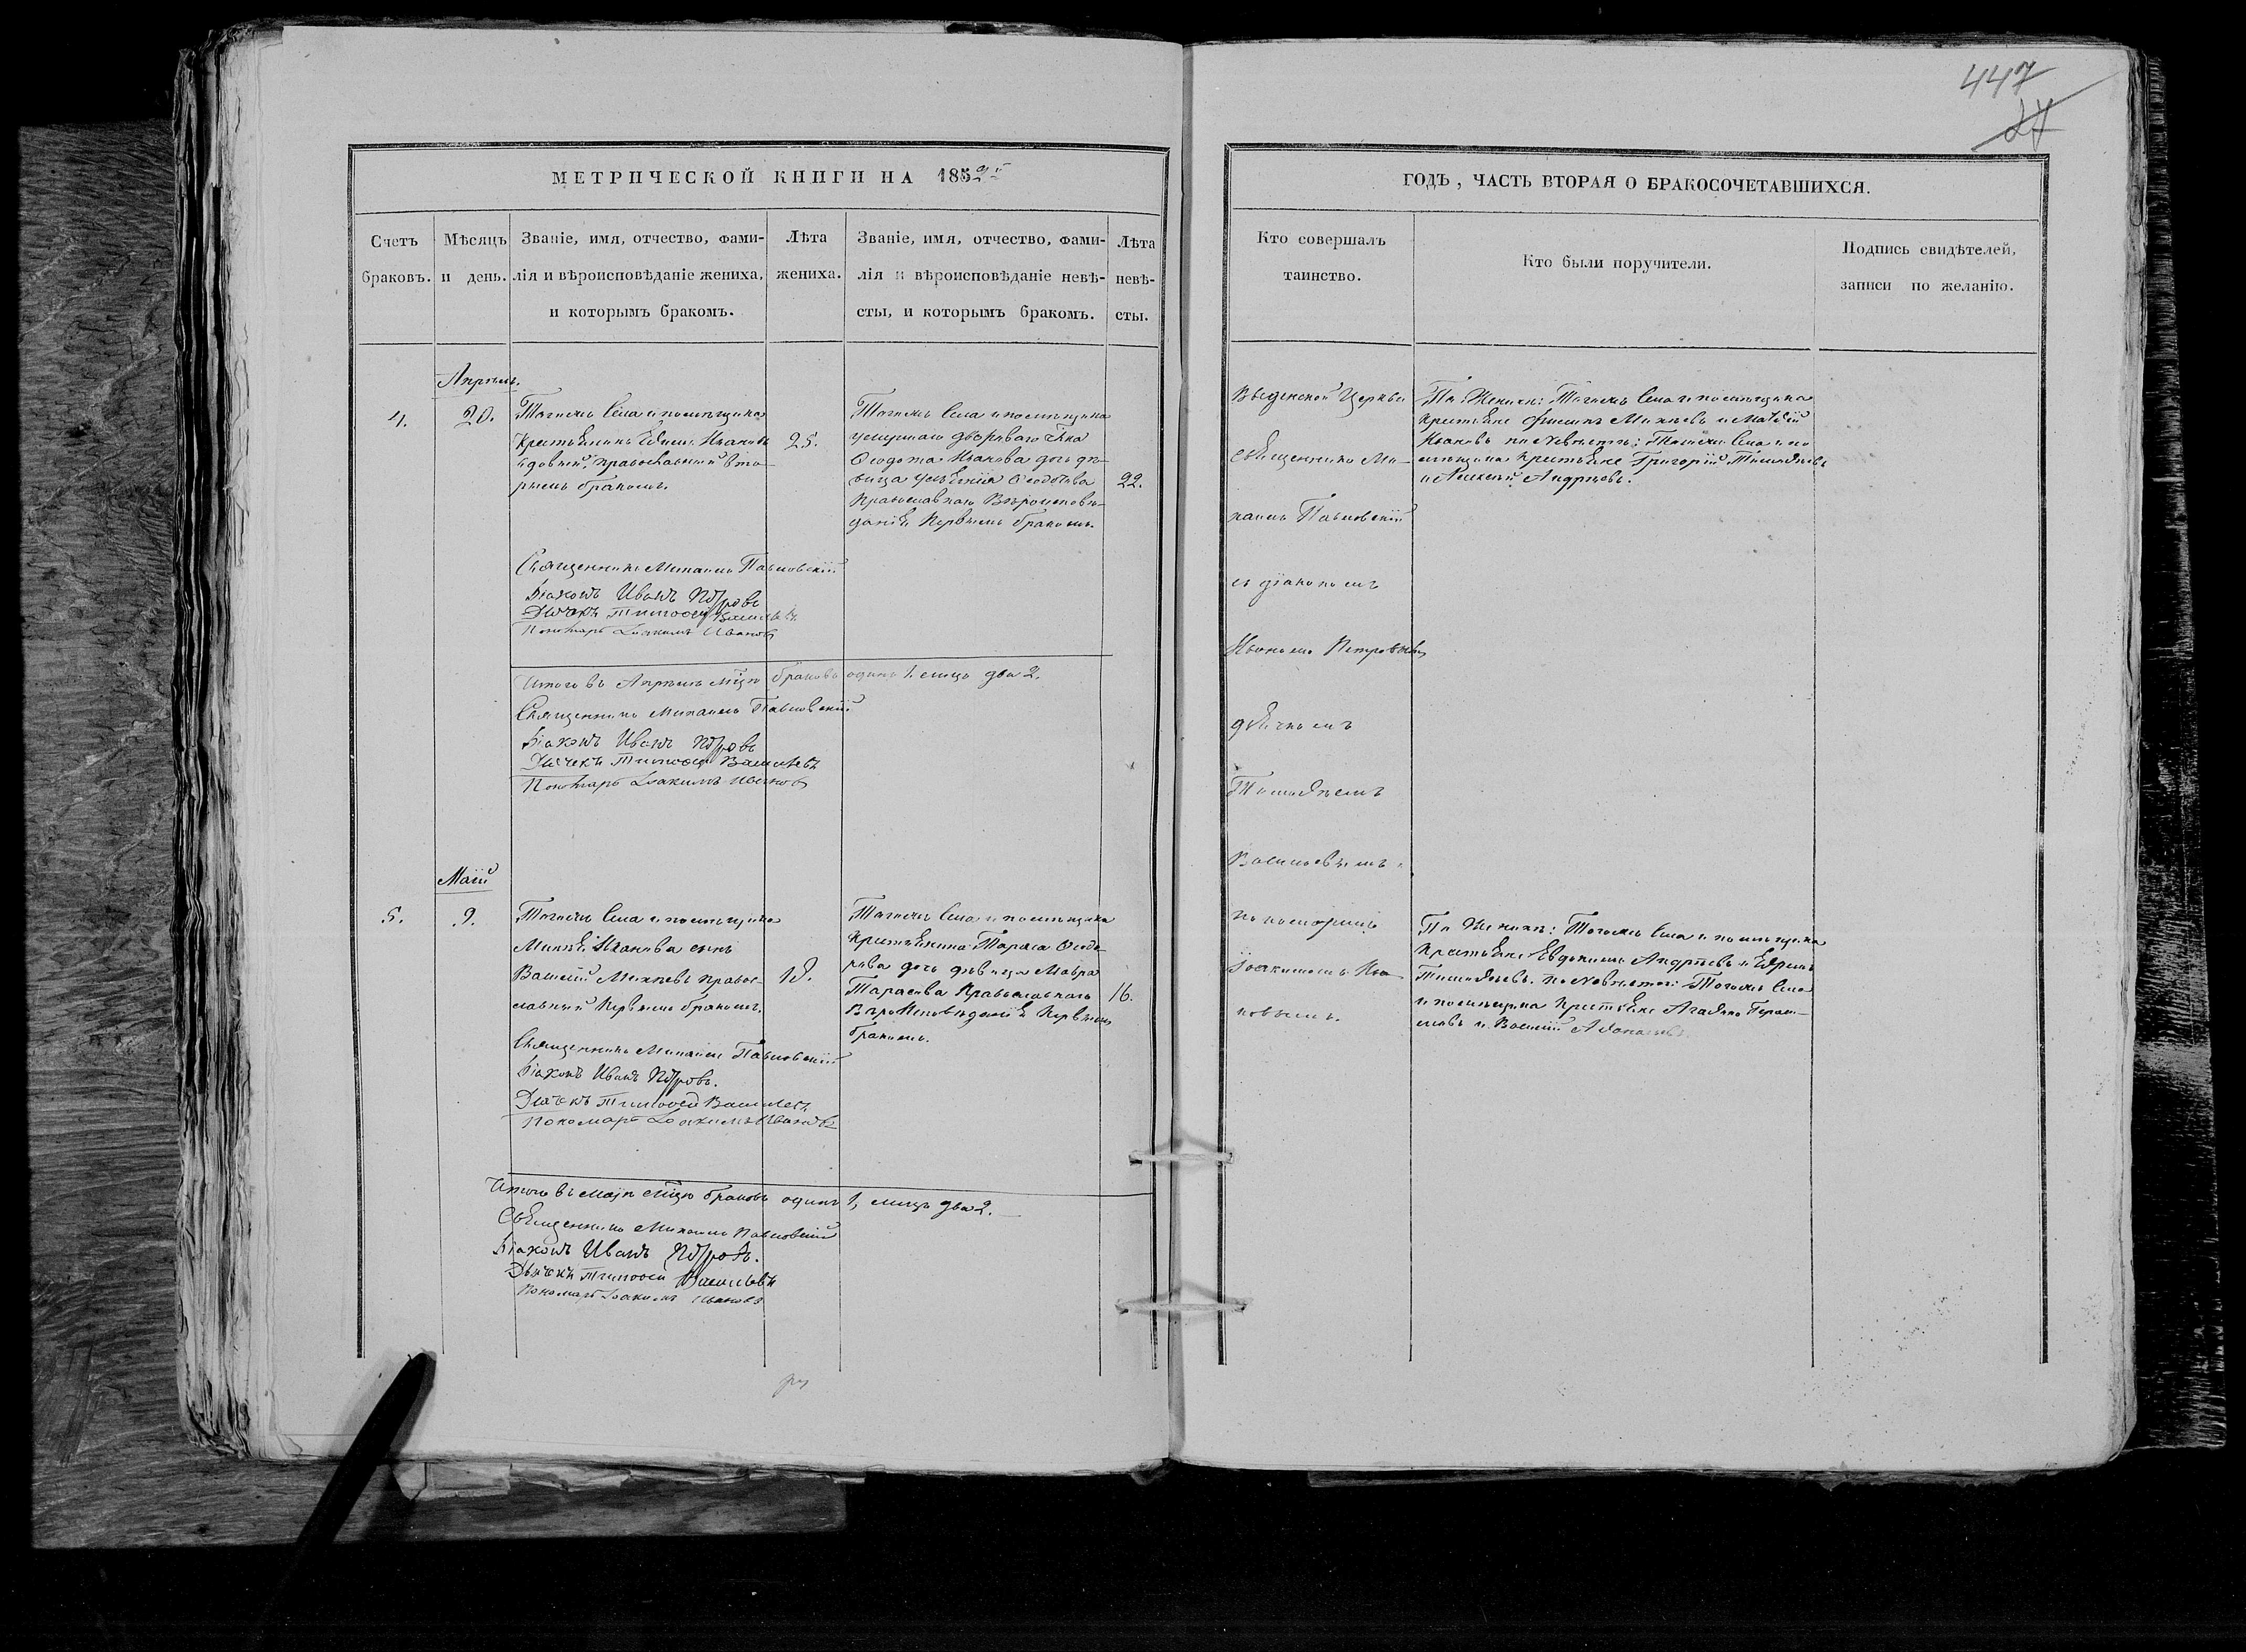 447
27
МЕТРИЧЕСКОЙ КНИГИ НА 1852й
Счетъ браковъ.
Мѣсяцъ и день.
Званіе, имя, отчество, фами-
лія и вѣроисповѣданіе жениха,
и которымъ бракомъ.
Лѣта
жениха.
Званіе, имя, отчество, фами-
лія и вѣроисповѣданіе невѣ-
сты, и которымъ бракомъ.
Лѣта
невѣ-
сты.
Апрѣль.
4.
20.
Тогожъ Села и помѣщика
Крестьянинъ Ефимъ Ивановъ
вдовый, православный вто-
рымъ бракомъ.
25.
Тогожъ Села и помѣщика
умершаго двороваго чка
Ѳеодота Иванова дочь дѣ-
вица Ѳеодотова
Православнаго Вѣроисповѣ-
данія Первымъ бракомъ.
22.
Священникъ Михаилъ Павловскій
Діаконъ Иванъ Петровъ
Дьячекъ Тимоѳей Васильевъ
Пономарь Іоакимъ Ивановъ
Итого въ Апрѣлѣ мцѣ браковъ одинъ 1. лицъ два 2.
Священникъ Михаилъ Павловскій
Діаконъ Иванъ Петровъ
Дьячекъ Тимоѳей Васильевъ
Пономарь Іоакимъ Ивановъ
Маій
5.
9.
Тогожъ Села и помѣщика
Михѣя Иванова сынъ
Василій Михѣевъ правос-
лавный Первымъ бракомъ.
18.
Тогожъ Села и помѣщика
Крестьянина Тараса Ѳеодо-
рова дочь дѣвица Мавра
Тарасова Православнаго
Вѣроисповѣданія Первымъ
бракомъ.
16.
Священникъ Михаилъ Павловскій
Діаконъ Иванъ Петровъ.
Дьячекъ Тимоѳей Васильевъ
Пономарь Іоакимъ Ивановъ
Итого въ маіѣ мцѣ браковъ одинъ 1, лицъ два 2.
Священникъ Михаилъ Павловскій
Діаконъ Иванъ Петровъ.
Дьячекъ Тимоѳей Васильевъ
Пономарь Іоакимъ Ивановъ
ГОДЪ, ЧАСТЬ ВТОРАЯ О БРАКОСОЧЕТАВШИХСЯ.
Кто совершалъ
таинство.
Кто были поручители.
Подпись свидѣтелей,
записи по желанію.
Введенской Церкви
Священникъ Ми-
хаилъ Павловскій
съ діакономъ
Иваномъ Петровымъ
дьячкомъ
Тимоѳеемъ
Васильевымъ и
пономаремъ
Іоакимомъ Ива-
новымъ.
По Женихѣ: Тогожъ Села и помѣщика
Крестьяне Филипъ Михѣевъ и Матвѣй
Ивановъ по Невѣстѣ: Тогожъ Села и по-
мѣщика Крестьяне Григорій Тимоѳеевъ
и Алексѣй Андреевъ.
По Женихѣ: Тогожъ Села и помѣщика
Крестьяне Евдокимъ Андреевъ и Ефремъ
Тимоѳеевъ. по Невѣстѣ: Тогожъ Села
и помѣщика Крестьяне Агаѳонъ Гераси-
мовъ и Василій Аѳанасьевъ.